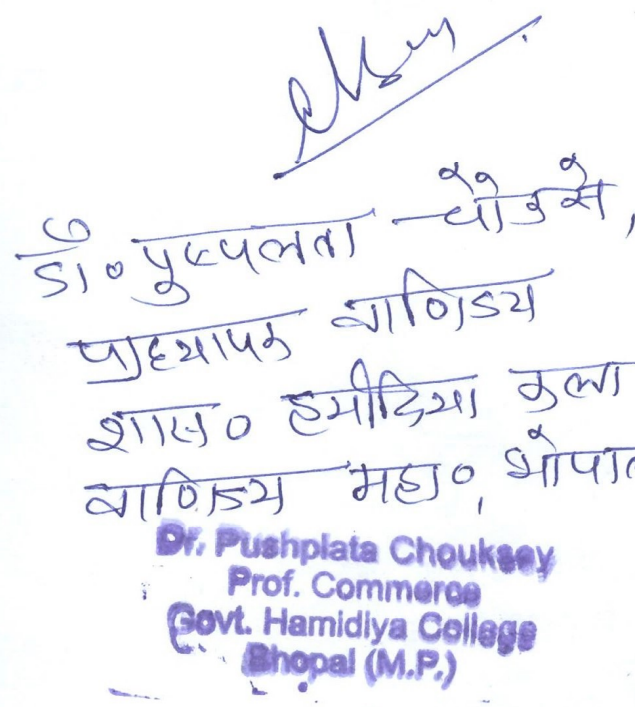 डॉ० पुष्पलता चौकसे,
प्राध्यापक वाणिज्य
शास० हमीदिया कला
वाणिज्य महा०, भोपाल
Dr. Pushplata Chouksey
Prof. Commerce
Govt. Hamidiya College
Bhopal (M.P.)